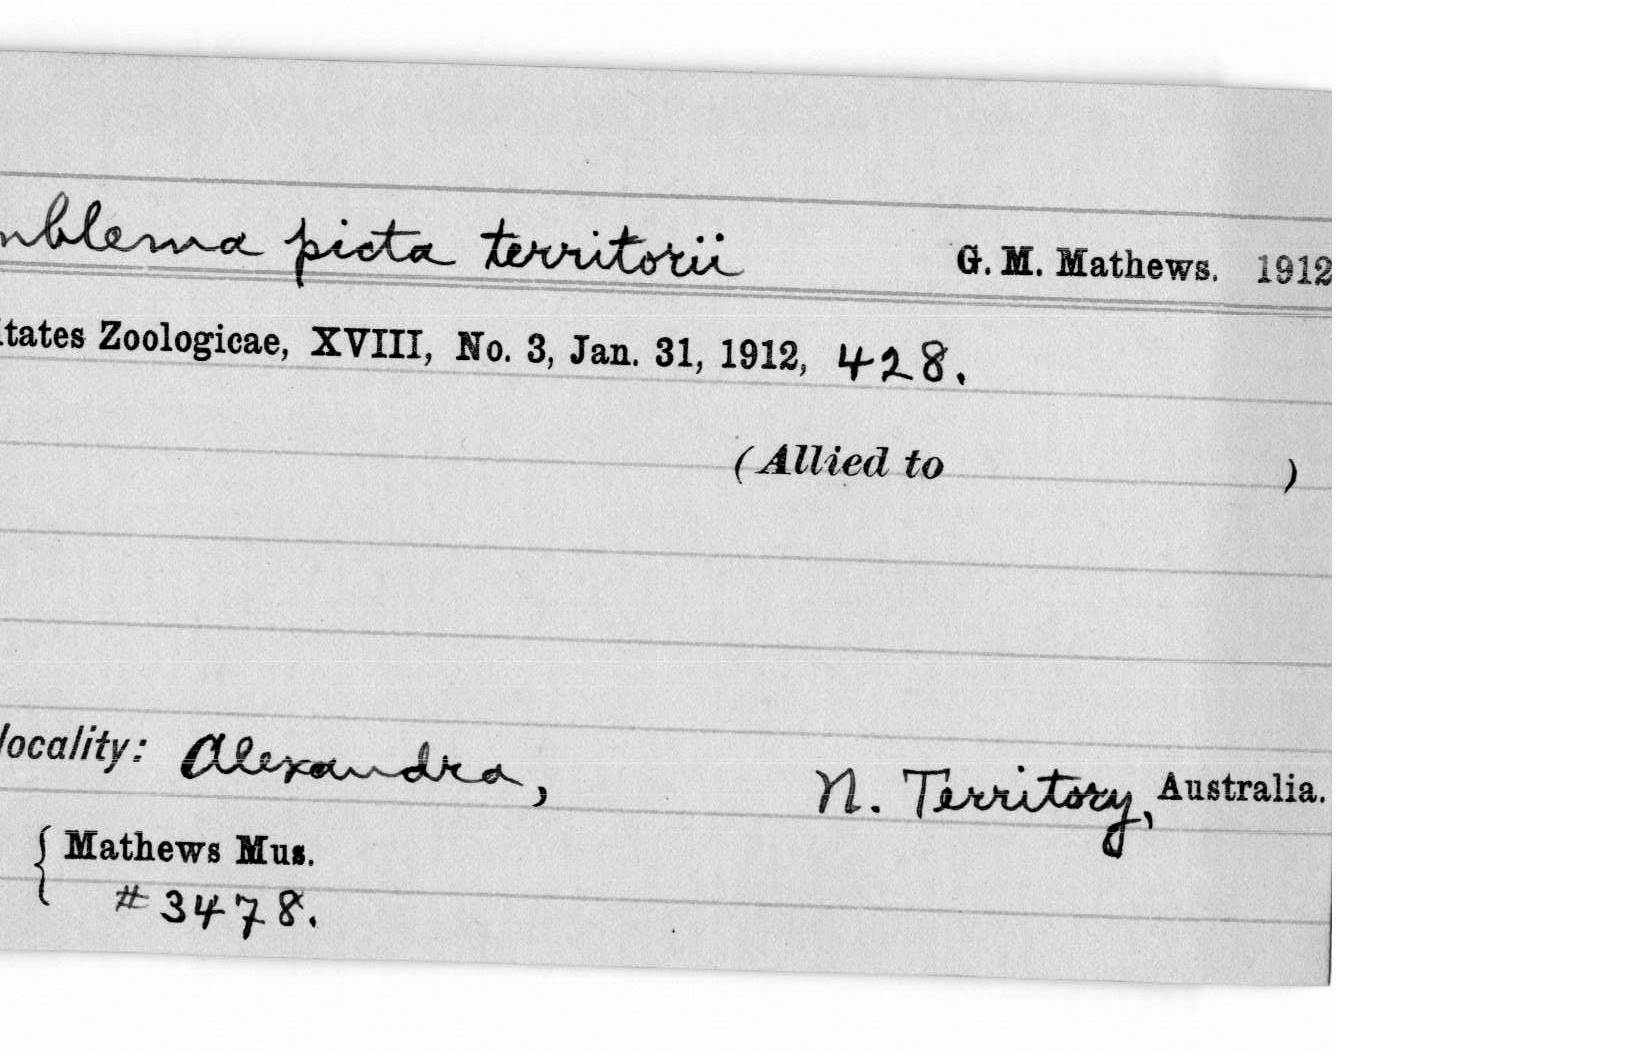 mblema picta territorii G. M. Mathews. 1912
itates Zoologicae, XVIII, No. 3, Jan. 31, 1912, 428.
(Allied to )
locality: Alexandra, N. Territory, Australia.
{ Mathews Mus.
# 3478.